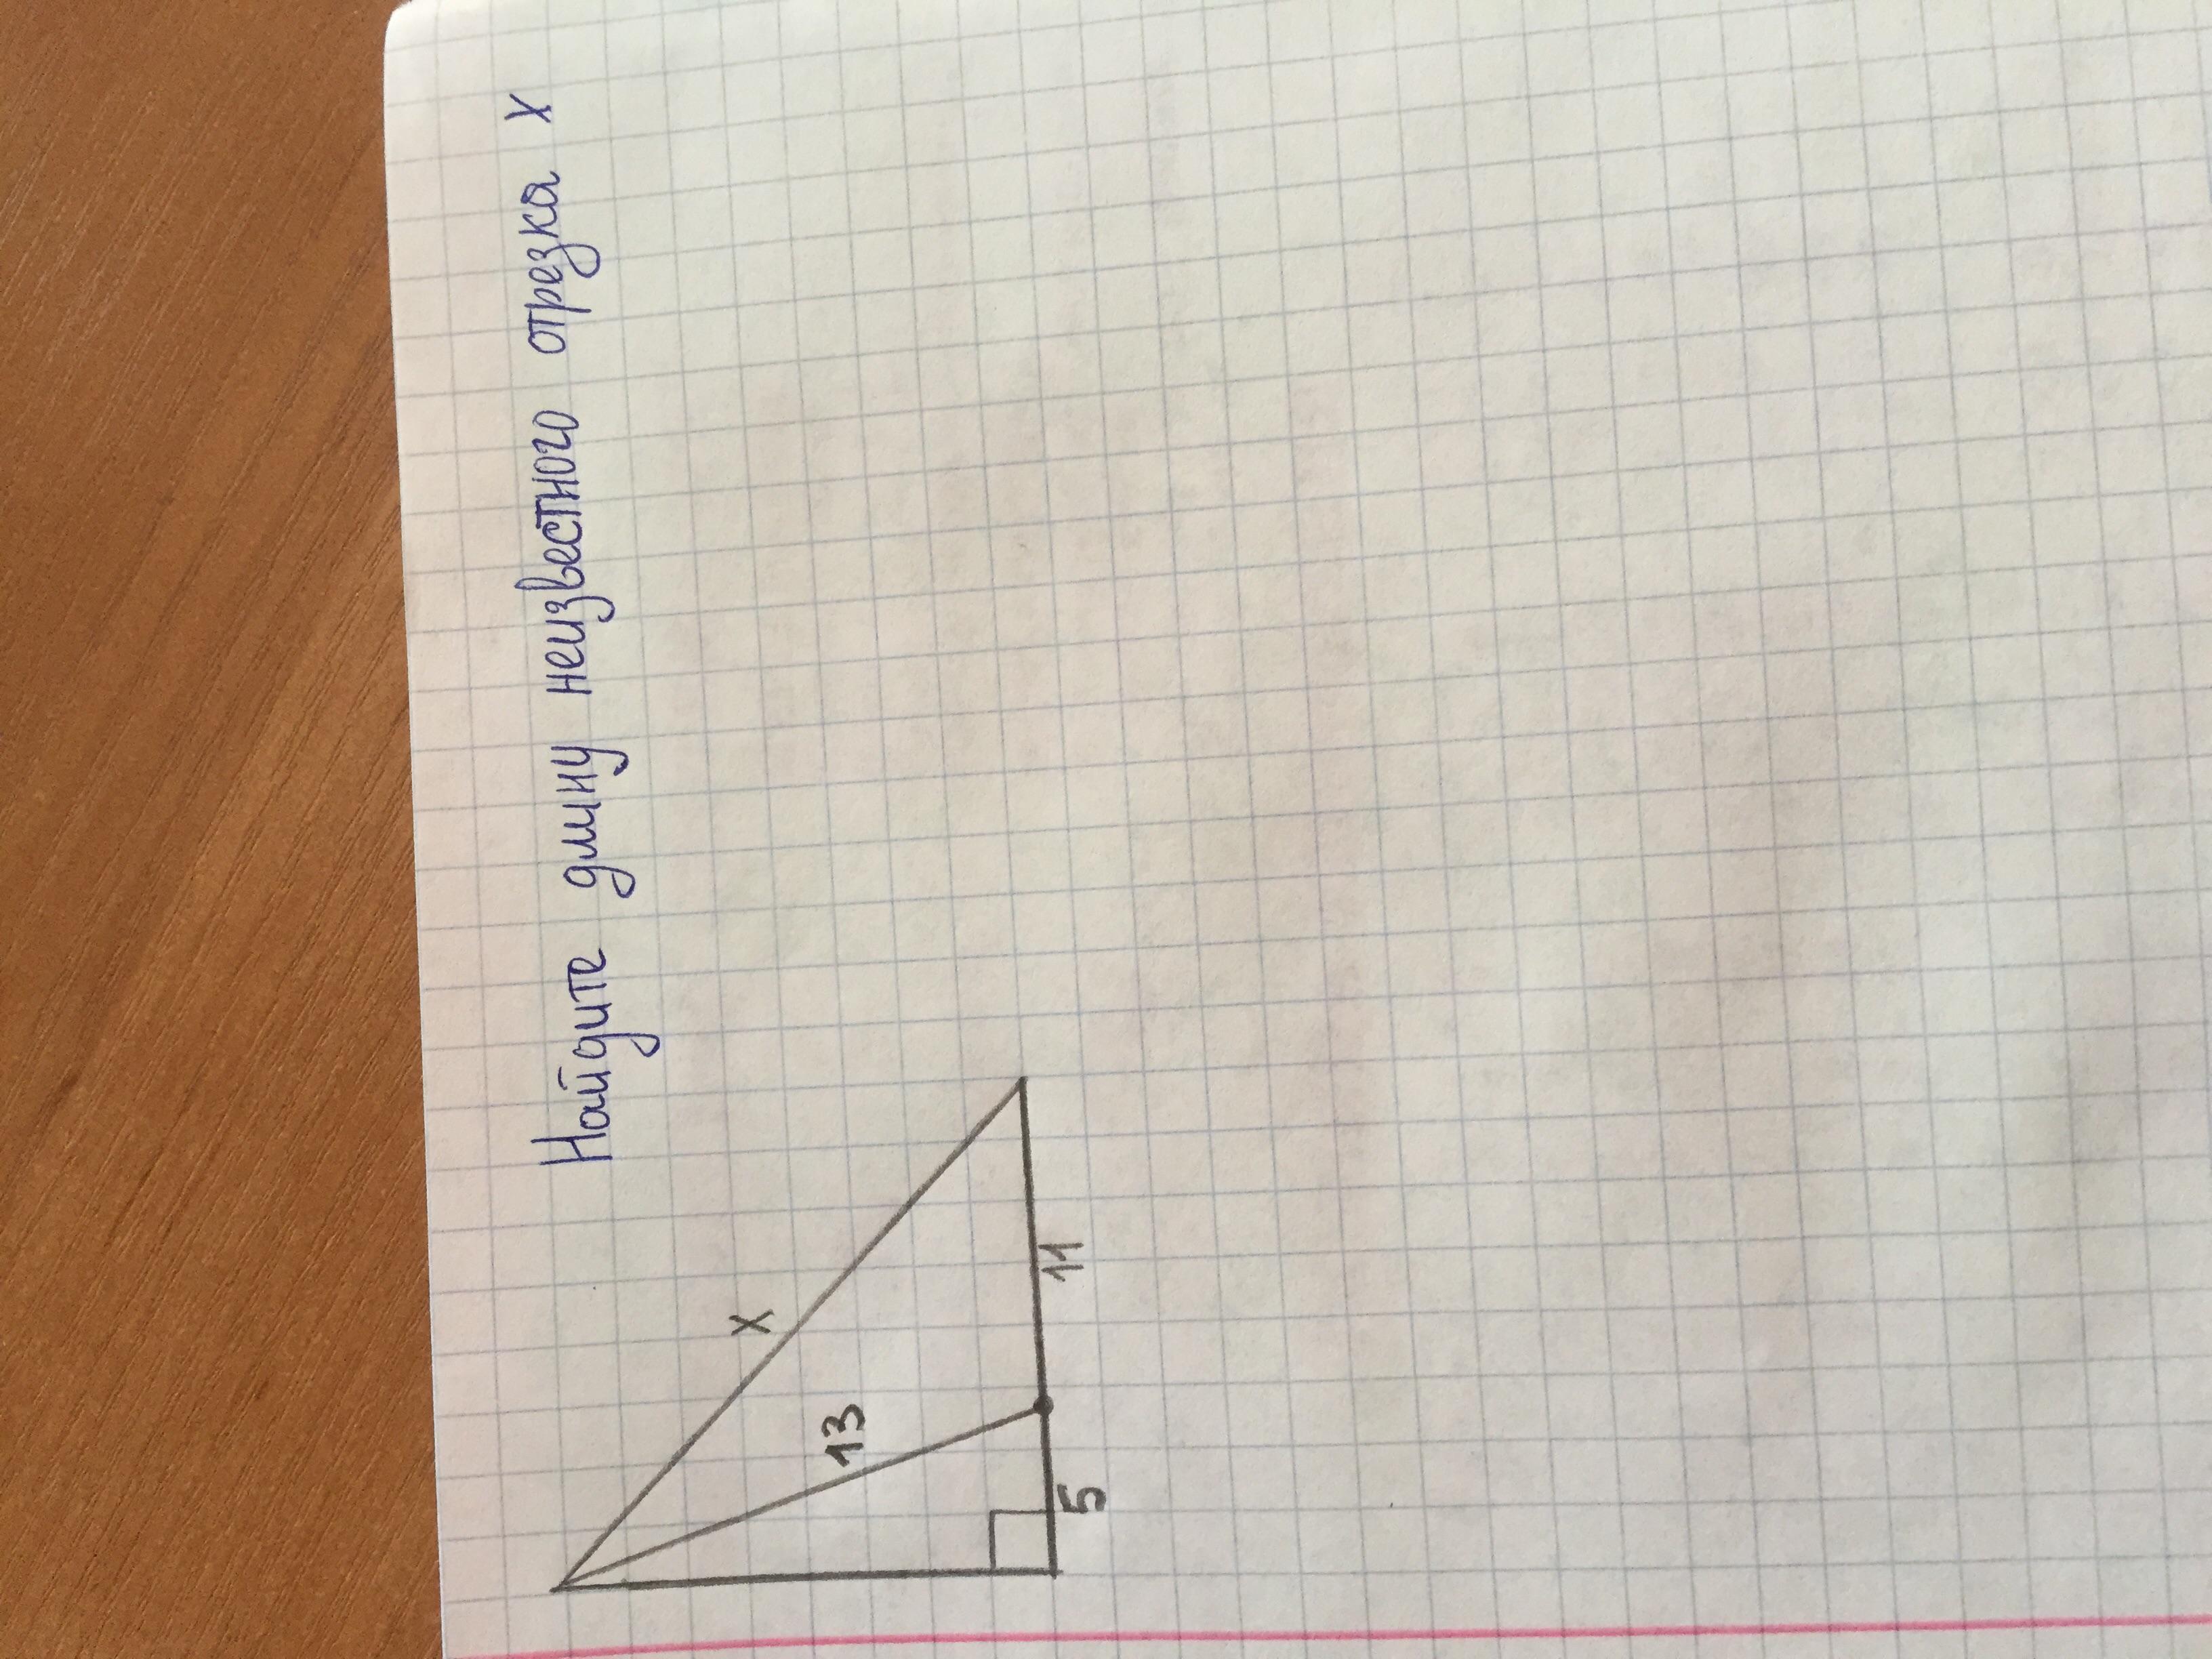 Найдите длину неизвестного отрезка X
X
13
5
11